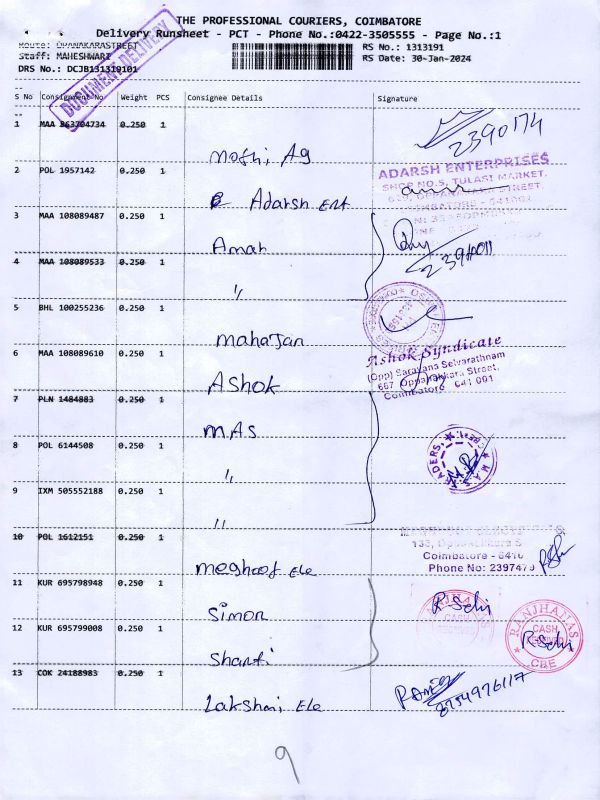 THE PROFESSIONAL COURIERS, COIMBATORE
Delivery Runsheet - PCT - Phone No.:0422-3505555 - Page No.:1
Route: OPANAKARASTREET
RS No.: 1313191
Staff: MAHESHWARI
RS Date: 30-Jan-2024
DRS No.: DCJB131319101
DOCUMENT DELIVERY
S No Consignment No Weight PCS Consignee Details Signature
1 MAA 863704734 0.250 1
2390174
2 POL 1957142 0.250 1 Adarsh Ent
ADARSH ENTERPRISES
SHOP NO.5, TULASI MARKET,
3 MAA 108089487 0.250 1 Amar
4 MAA 108089533 0.250 1 "
5 BHL 100255236 0.250 1 Mahajan
6 MAA 108089610 0.250 1 Ashok
Ashok Syndicate
(Opp) Saravana Selvarathnam
667 Oppanakkara Street,
Coimbatore 641 001
7 PLN 1484883 0.250 1 MAS
8 POL 6144508 0.250 1 "
M.A.S. TRADERS
9 IXM 505552188 0.250 1 "
10 POL 1612151 0.250 1 Ele
Coimbatore - 6410
Phone No: 2397479
11 KUR 695798948 0.250 1 Simon
R Selvi
12 KUR 695799008 0.250 1 Shanti
RANJHANAS
CASH
RECEIVED
CBE
R Selvi
13 COK 24188983 0.250 1 Lakshmi Ele
8754976117
9